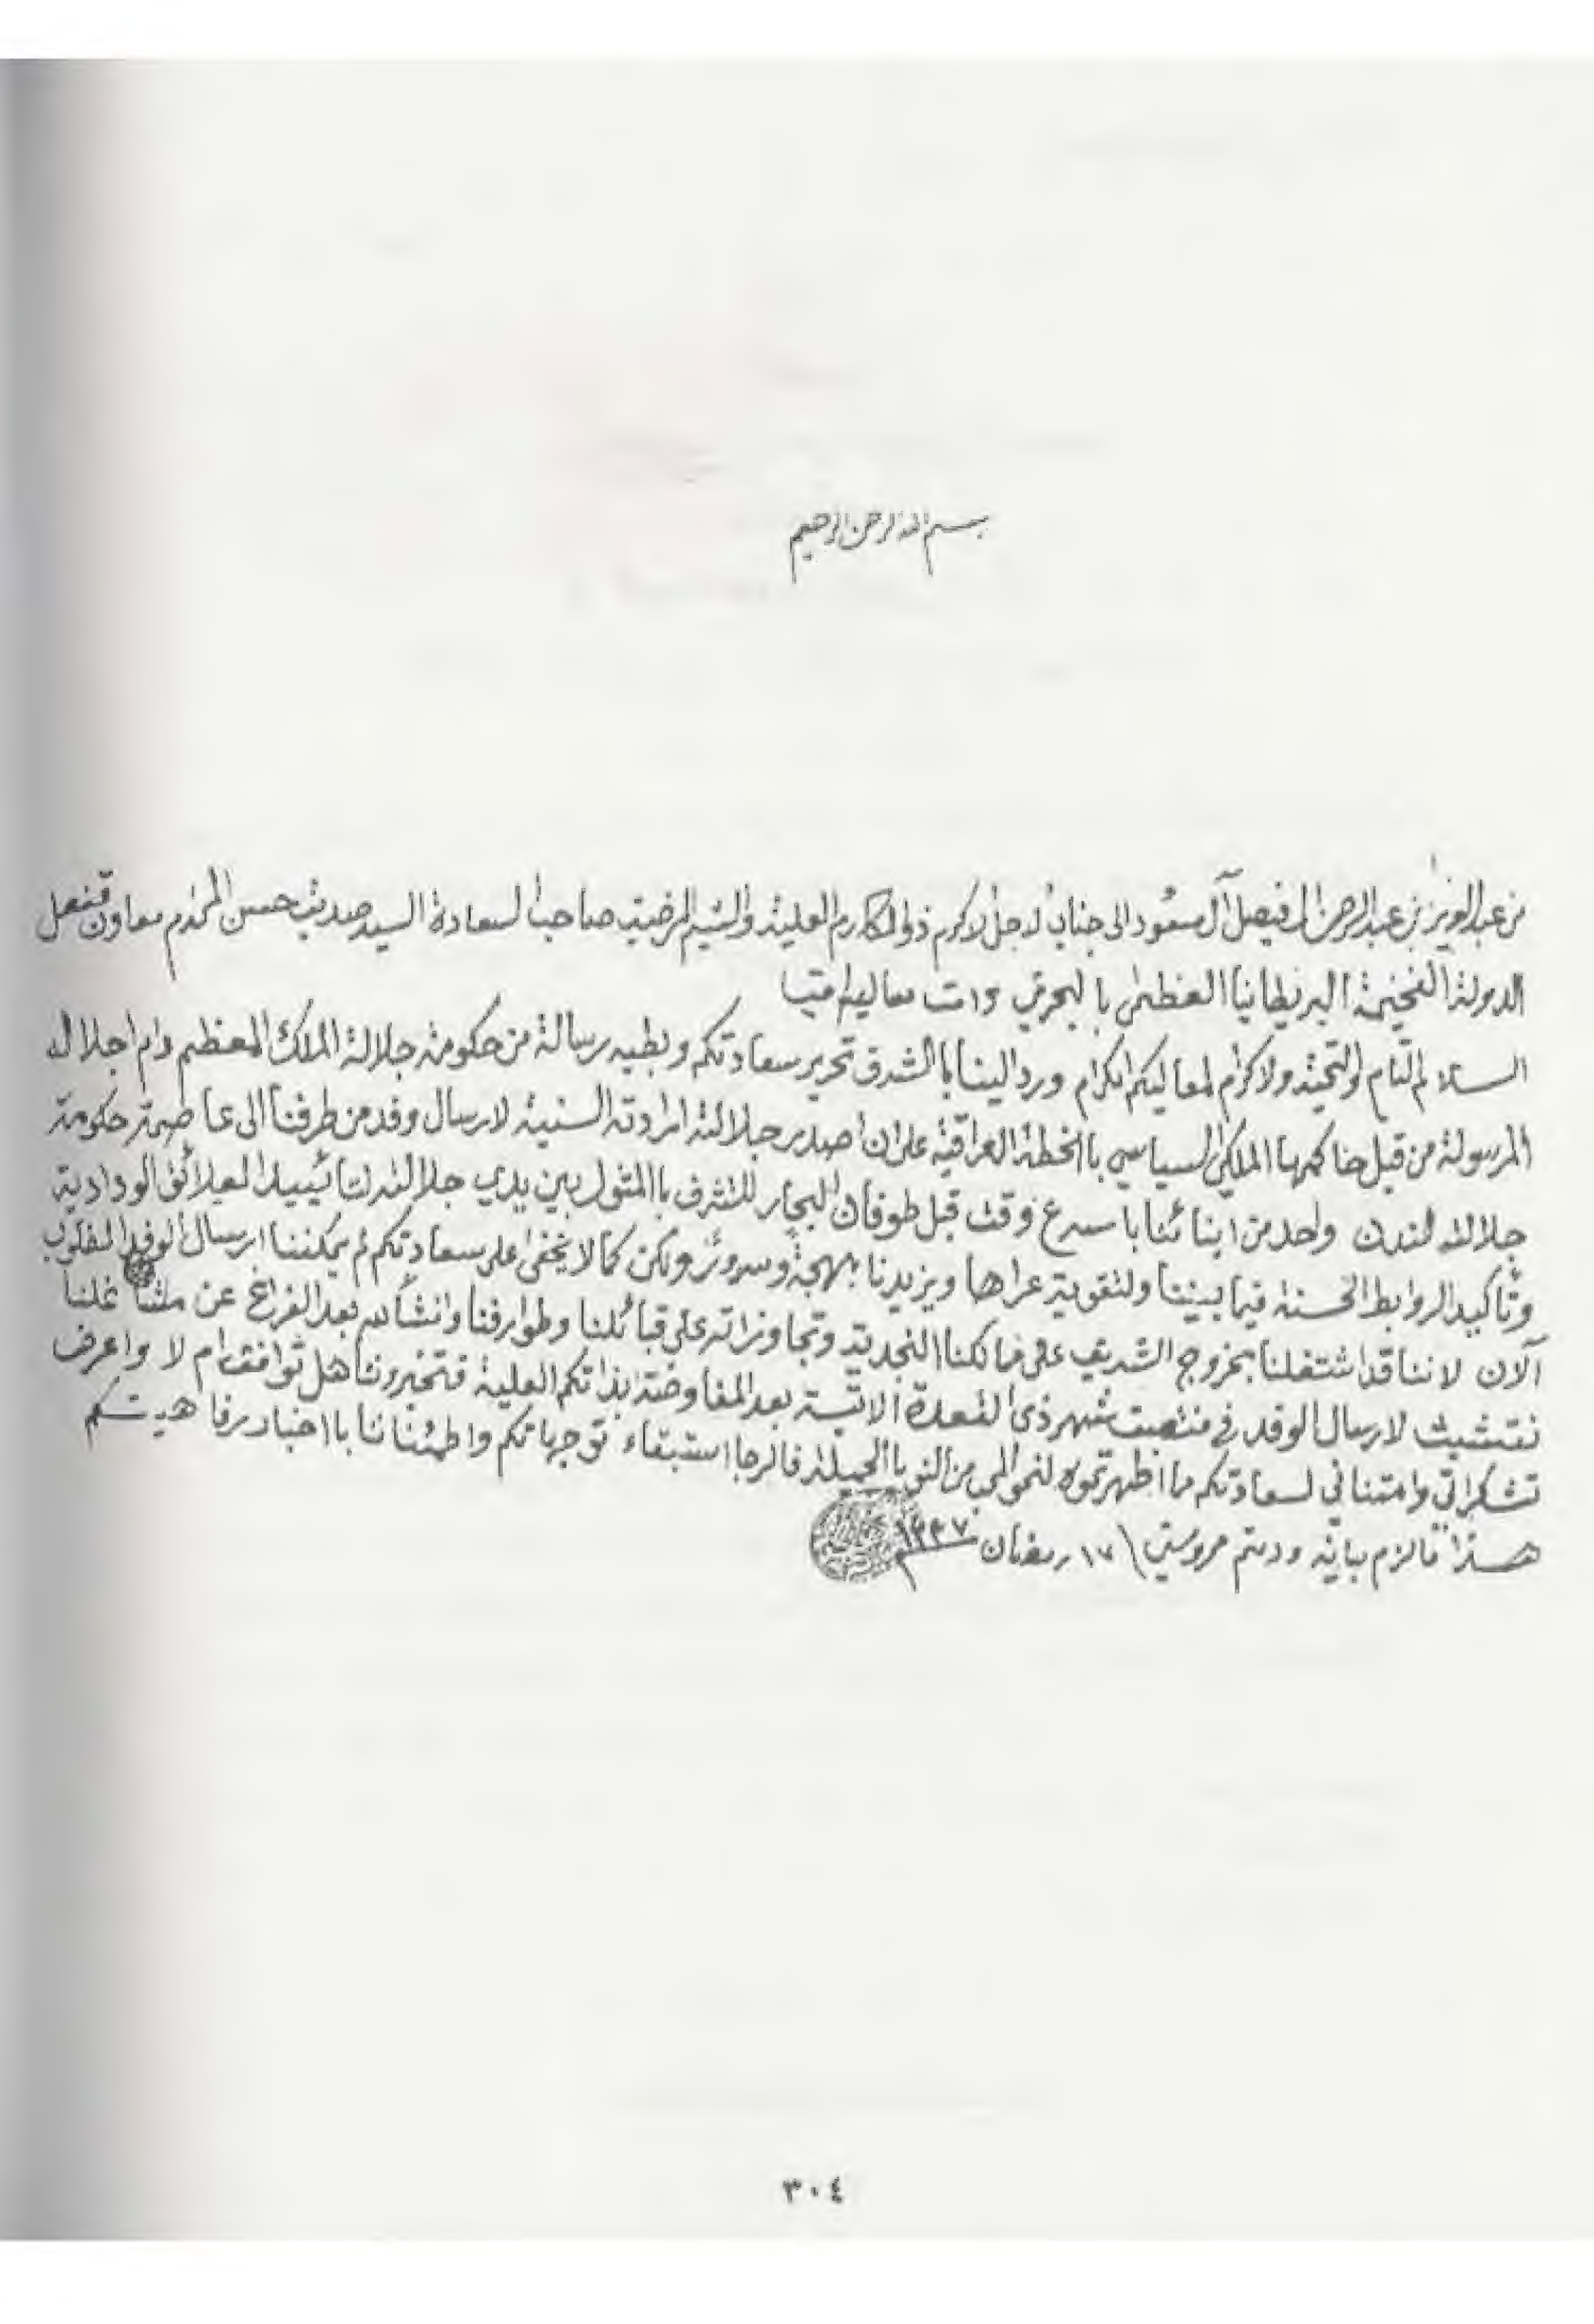 بسم الله الرحمن الرحيم
من عبد العزيز بن عبد الرحمن ال فيصل آل سعود الى جناب الاجل الاكرم ذو المكارم العلية والشيم المرضية صاحب السعادة السيد صديق حسن المحترم معاون قنصل
الدولة الفخيمة البريطانيا العظمى بالبحرين دامت معاليه
السلام التام والتحية والاكرام لمعاليكم الكرام ورد الينا باالشرف تحرير سعادتكم وبطيه رسالة من حكومة جلالة الملك المعظم دام اجلاله
المرسولة من قبل حاكمها الملكي السياسي باالخطة العراقية على ان اصدر جلالته ارادته السنية لارسال وفد من طرفنا الى عاصمة حكومة
جلالته لندن واحد من ابنائنا باسرع وقت قبل طوفان البحار للتشرف باالمثول بين يدي جلالته لتائييد العلائق الودادية
وتأكيد الروابط الحسنة فيما بيننا ولتقوية عراها ويزيدنا بهجة وسرور ولكن كما لا يخفى على سعادتكم لم يمكننا ارسال الوفد المطلوب
آلان لاننا قد اشتغلنا بخروج الشريف على ممالكنا النجدية وتجاوزاته على قبائلنا وطوارفنا وانشأ الله بعد الفراغ عن مشاغلنا
نتشبث لارسال الوفد في منتصف شهر ذى القعدة الاتية بعد المفاوضة بذاتكم العلية فتخبروننا هل توافق ام لا واعرض
تشكراتي وامتناني لسعادتكم ما اظهرتموه لنحو المحب من النوايا الجميلة فالرجا استبقاء توجهاتكم واطمئناننا باخبار رفاهيتكم
هذا مالزم بيانه ودمتم محروسين ١٧ رمضان ١٣٣٧
٣٠٤